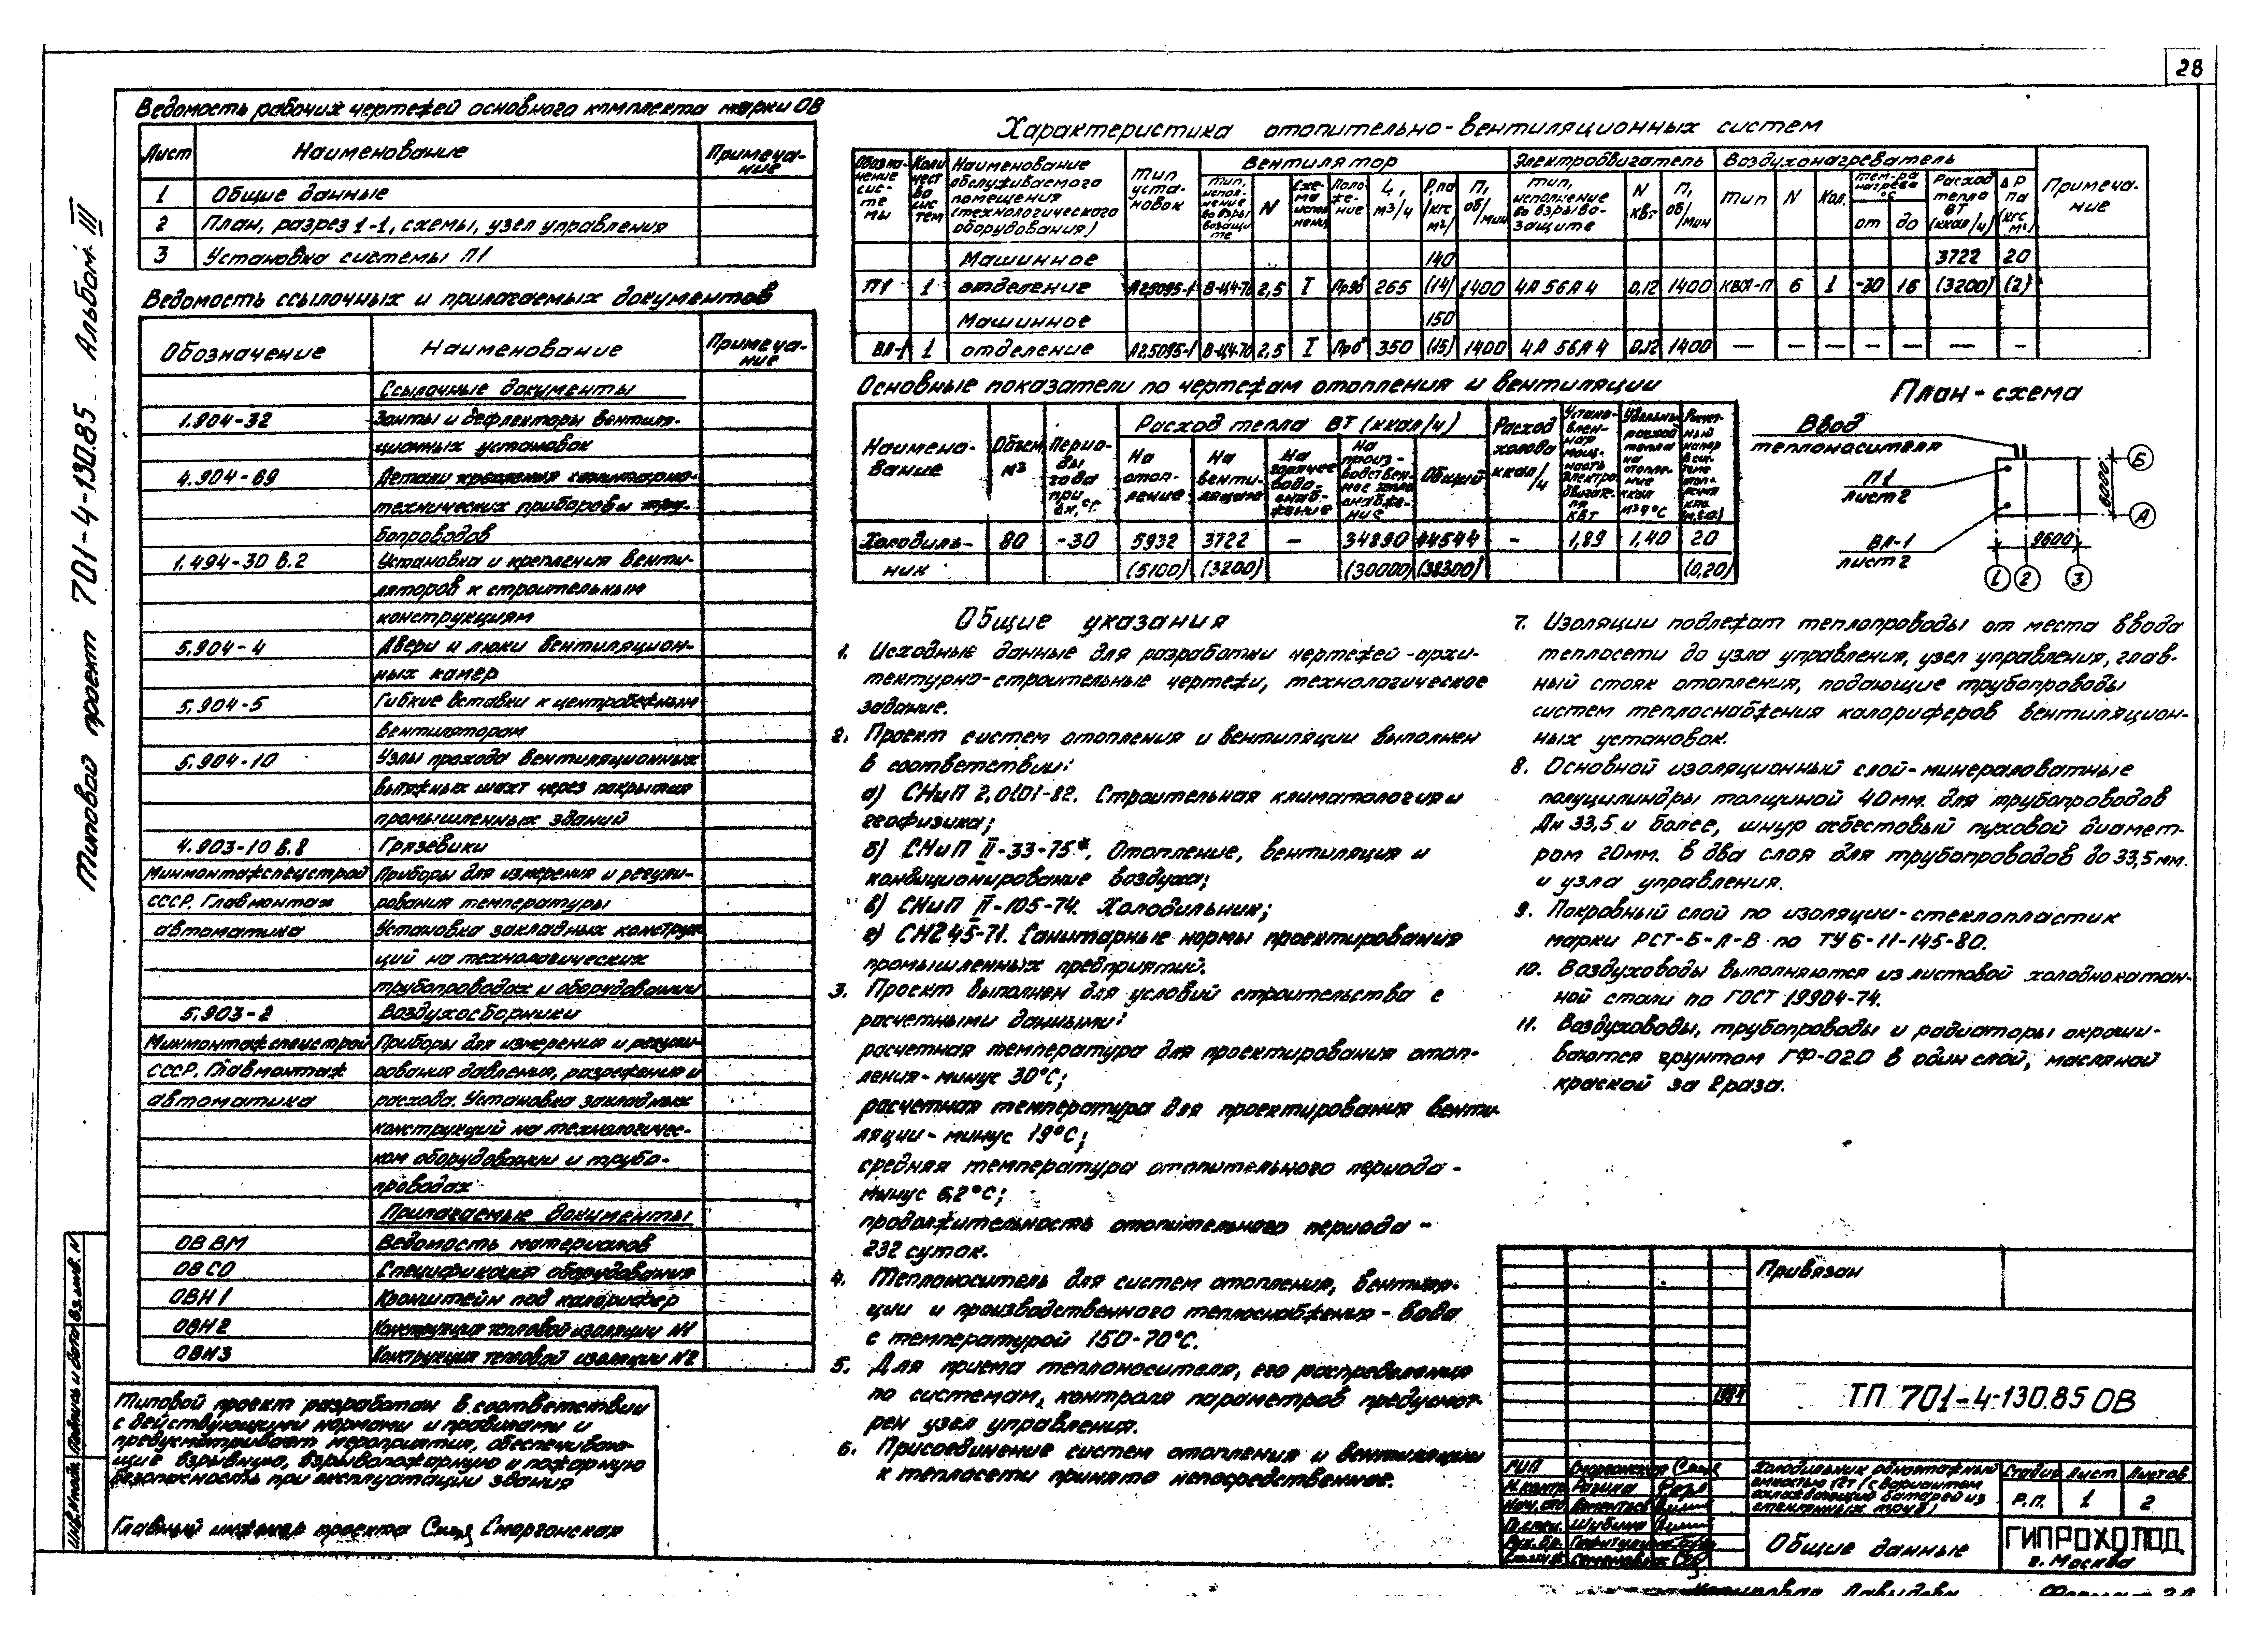 28
Типовой проект 701-4-130.85 Альбом III
Ведомость рабочих чертежей основного комплекта марки ОВ
Лист Наименование Примеча-
ние
1 Общие данные
2 План, разрез 1-1, схемы, узел управления
3 Установка системы П1
Ведомость ссылочных и прилагаемых документов
Обозначение Наименование Примеча-
ние
Ссылочные документы
1.904-32 Зонты и дефлекторы вентиля-
ционных установок
4.904-69 Детали крепления санитарно-
технических приборов и тру-
бопроводов
1.494-30 в.2 Установка и крепления венти-
ляторов к строительным
конструкциям
5.904-4 Двери и люки вентиляцион-
ных камер
5.904-5 Гибкие вставки к центробежным
вентиляторам
5.904-10 Узлы прохода вентиляционных
вытяжных шахт через покрытия
промышленных зданий
4.903-10 в.8 Грязевики
Минмонтажспецстрой Приборы для измерения и регули-
СССР. Главмонтаж рования температуры
автоматика Установка закладных конструк-
ций на технологических
трубопроводах и оборудовании
5.903-2 Воздухосборники
Минмонтажспецстрой Приборы для измерения и регули-
СССР. Главмонтаж рования давления, разрежения и
автоматика расхода. Установка закладных
конструкций на технологичес-
ком оборудовании и трубо-
проводах
Прилагаемые документы
ОВ ВМ Ведомость материалов
ОВ СО Спецификация оборудования
ОВН1 Кронштейн под калорифер
ОВН2 Конструкция тепловой изоляции N1
ОВН3 Конструкция тепловой изоляции N2
Типовой проект разработан в соответствии
с действующими нормами и правилами и
предусматривает мероприятия, обеспечиваю-
щие взрывную, взрывопожарную и пожарную
безопасность при эксплуатации здания
Главный инженер проекта Сморгонская
Инв.N подл. Подпись и дата Взам. инв. N
Характеристика отопительно-вентиляционных систем
Обозна-
чение
сис-
те
мы
Коли
чест
во
сис
тем
Наименование
обслуживаемого
помещения
(технологического
оборудования)
Тип
уста-
новок
Вентилятор
Тип,
испол-
нение
во взры
возащи
те
N
Схе-
ма
испол
нения
Поло
же-
ние
L,
м3/ч
Р, па
(кгс
м2)
П,
об/
мин
Электродвигатель
Тип,
исполнение
во взрыво-
защите
N
кВт
П,
об
/мин
Воздухонагреватель
Тип N Кол.
Тем-ра
нагрева
°С
от до
Расход
тепла
ВТ
(ккал/ч)
ΔР
Па
(кгс
м2)
Примеча-
ние
Машинное 140 3722 20
П1 1 отделение А2,5095-1 В-Ц4-70 2,5 I Пр0° 265 (14) 1400 4А 56А 4 0,12 1400 КВЯ-П 6 1 -30 16 (3200) (2)
Машинное 150
ВЛ-1 1 отделение А2,5095-1 В-Ц4-70 2,5 I Пр0° 350 (15) 1400 4А 56А 4 0,12 1400 — — — — — — —
Основные показатели по чертежам отопления и вентиляции
Наимено-
вание
Объем
м3
Перио-
ды
года
при
tн, °С
Расход тепла ВТ (ккал/ч)
На
отоп-
ление
На
венти-
ляцию
На
горячее
водо-
снаб-
жение
На
произ-
водствен-
ное тепло
снабже-
ние
Общий
Расход
холода
ккал/
ч
Устано-
влен-
ная
мощ-
ность
электро
двигате-
ля
КВТ
Удельный
расход
тепла
на
отопле-
ние
ккал
м3ч°С
Расчет-
ный
напор
в сис-
теме
отоп-
ления
кПа
Холодиль- 80 -30 5932 3722 — 34890 44544 — 1,89 1,40 20
ник (5100) (3200) (30000) (38300) (0,20)
План-схема
Ввод
теплоносителя
П1
лист 2
ВЛ-1
лист 2
Б
А
6000
9600
1 2 3
Общие указания
1. Исходные данные для разработки чертежей-архи-
тектурно-строительные чертежи, технологическое
задание.
2. Проект систем отопления и вентиляции выполнен
в соответствии:
а) СНиП 2.01.01-82. Строительная климатология и
геофизика;
б) СНиП II-33-75*. Отопление, вентиляция и
кондиционирование воздуха;
в) СНиП II-105-74. Холодильник;
г) СН245-71. Санитарные нормы проектирования
промышленных предприятий.
3. Проект выполнен для условий строительства с
расчетными данными:
расчетная температура для проектирования отоп-
ления-минус 30°С;
расчетная температура для проектирования венти-
ляции-минус 19°С;
средняя температура отопительного периода-
минус 6,2°С;
продолжительность отопительного периода -
232 суток.
4. Теплоноситель для систем отопления, вентиля-
ции и производственного теплоснабжения-вода
с температурой 150-70°С.
5. Для приема теплоносителя, его распределения
по системам, контроля параметров предусмот-
рен узел управления.
6. Присоединение систем отопления и вентиляции
к теплосети принято непосредственное.
7. Изоляции подлежат теплопроводы от места ввода
теплосети до узла управления, узел управления, глав-
ный стояк отопления, подающие трубопроводы
систем теплоснабжения калориферов вентиляцион-
ных установок.
8. Основной изоляционный слой-минераловатные
полуцилиндры толщиной 40мм. для трубопроводов
Дн 33,5 и более, шнур асбестовый пуховой диамет-
ром 20мм. в два слоя для трубопроводов до 33,5мм.
и узла управления.
9. Покровный слой по изоляции-стеклопластик
марки РСТ-Б-Л-В по ТУ6-11-145-80.
10. Воздуховоды выполняются из листовой холоднокатан-
ной стали по ГОСТ 19904-74.
11. Воздуховоды, трубопроводы и радиаторы окраши-
ваются грунтом ГФ-020 в один слой, масляной
краской за 2 раза.
Привязан
ТП 701-4-130.85 ОВ
ГИП Сморгонская
Н.контр. Рагина
Нач.отд.
Гл.спец. Шубина
Рук.бр.
Холодильник одноэтажный
емкостью 12т (с вариантом
охлаждающих батарей из
стеклянных труб)
Стадия Лист Листов
Р.П. 1 2
Общие данные
ГИПРОХОЛОД
г. Москва
Копировал Давыдова